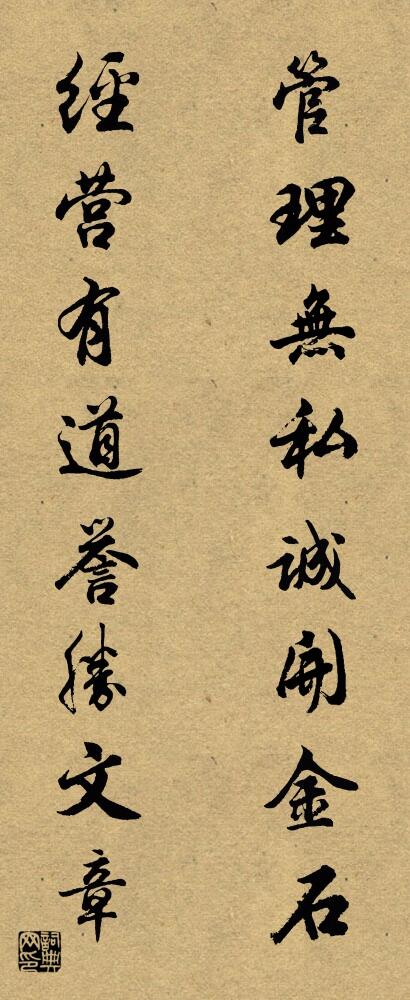 管理無私誠開金石
经营有道誉勝文章
詞典网印